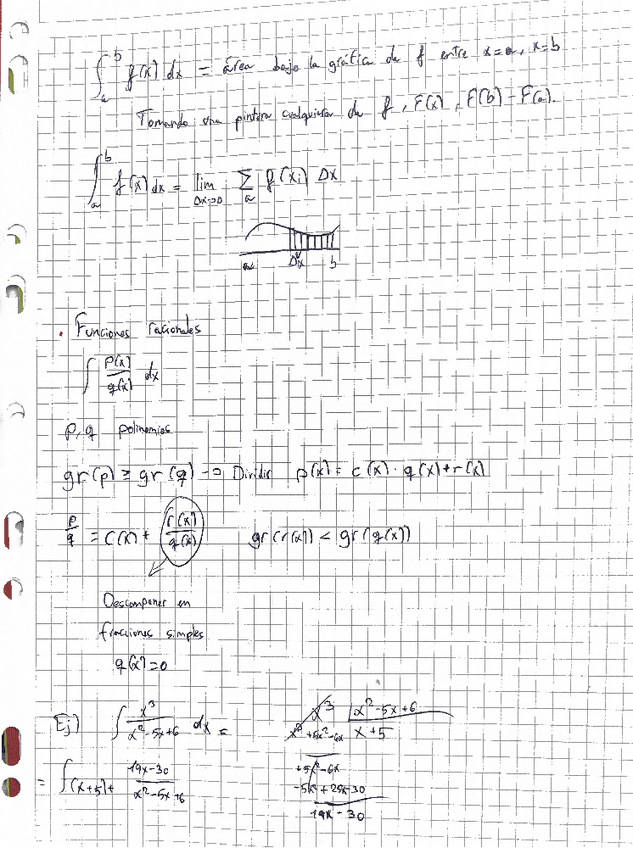 ∫_a^b f(x) dx = área bajo la gráfica de f entre x=a, x=b
Tomando una cualquiera de f, F(x), F(b)-F(a).
∫_a^b f(x) dx = lim_{Δx→0} Σ_a f(x_i) Δx
Δx b
Funciones racionales
∫ p(x)/q(x) dx
p, q polinomios
gr(p) ≥ gr(q) → Dividir p(x) = c(x) · q(x) + r(x)
p/q = c(x) + r(x)/q(x) gr(r(x)) < gr(q(x))
Descomponer en
fracciones simples
q(x)=0
Ej) ∫ x³/(x²-5x+6) dx =
x³ | x²-5x+6
-x³+5x²-6x x+5
+5x²-6x
-5x²+25x-30
19x-30
= ∫(x+5)+ (19x-30)/(x²-5x+6)